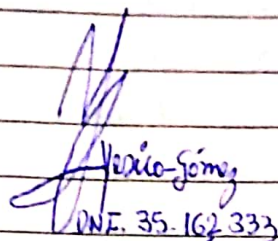 Yesica Gómez
DNI. 35.162.333